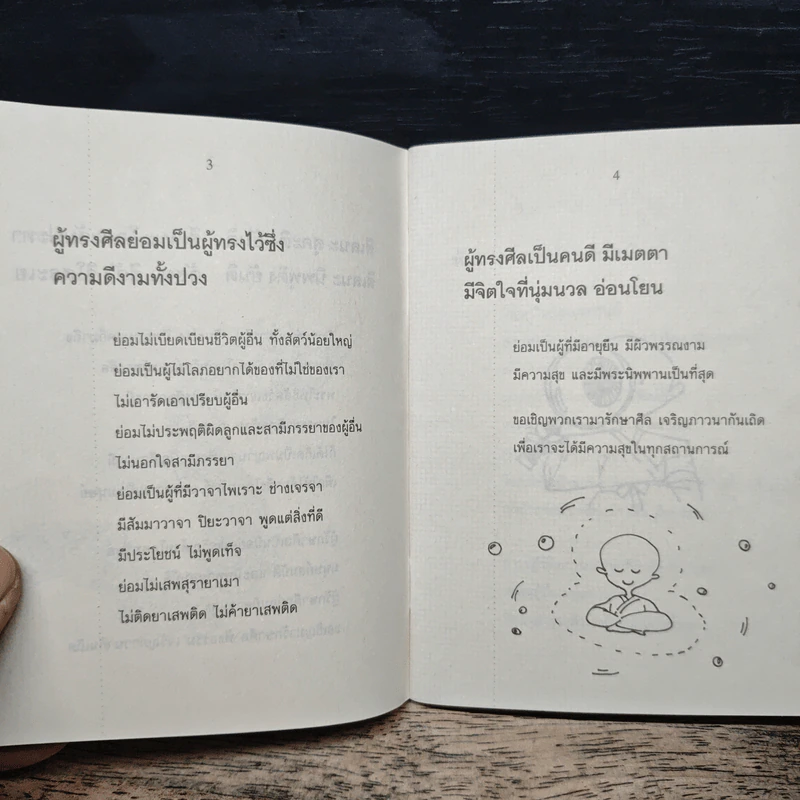 3
ผู้ทรงศีลย่อมเป็นผู้ทรงไว้ซึ่ง
ความดีงามทั้งปวง
ย่อมไม่เบียดเบียนชีวิตผู้อื่น ทั้งสัตว์น้อยใหญ่
ย่อมเป็นผู้ไม่โลภอยากได้ของที่ไม่ใช่ของเรา
ไม่เอารัดเอาเปรียบผู้อื่น
ย่อมไม่ประพฤติผิดลูกและสามีภรรยาของผู้อื่น
ไม่นอกใจสามีภรรยา
ย่อมเป็นผู้ที่มีวาจาไพเราะ ช่างเจรจา
มีสัมมาวาจา ปิยะวาจา พูดแต่สิ่งที่ดี
มีประโยชน์ ไม่พูดเท็จ
ย่อมไม่เสพสุรายาเมา
ไม่ติดยาเสพติด ไม่ค้ายาเสพติด
4
ผู้ทรงศีลเป็นคนดี มีเมตตา
มีจิตใจที่นุ่มนวล อ่อนโยน
ย่อมเป็นผู้ที่มีอายุยืน มีผิวพรรณงาม
มีความสุข และมีพระนิพพานเป็นที่สุด
ขอเชิญพวกเรามารักษาศีล เจริญภาวนากันเถิด
เพื่อเราจะได้มีความสุขในทุกสถานการณ์